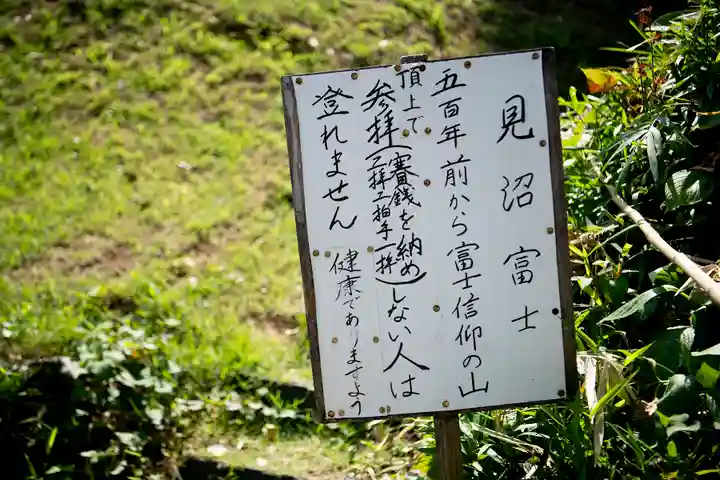 見沼富士
五百年前から富士信仰の山
頂上で
参拝(賽銭を納め
二拝二拍手一拝)しない人は
登れません
健康でありますよう